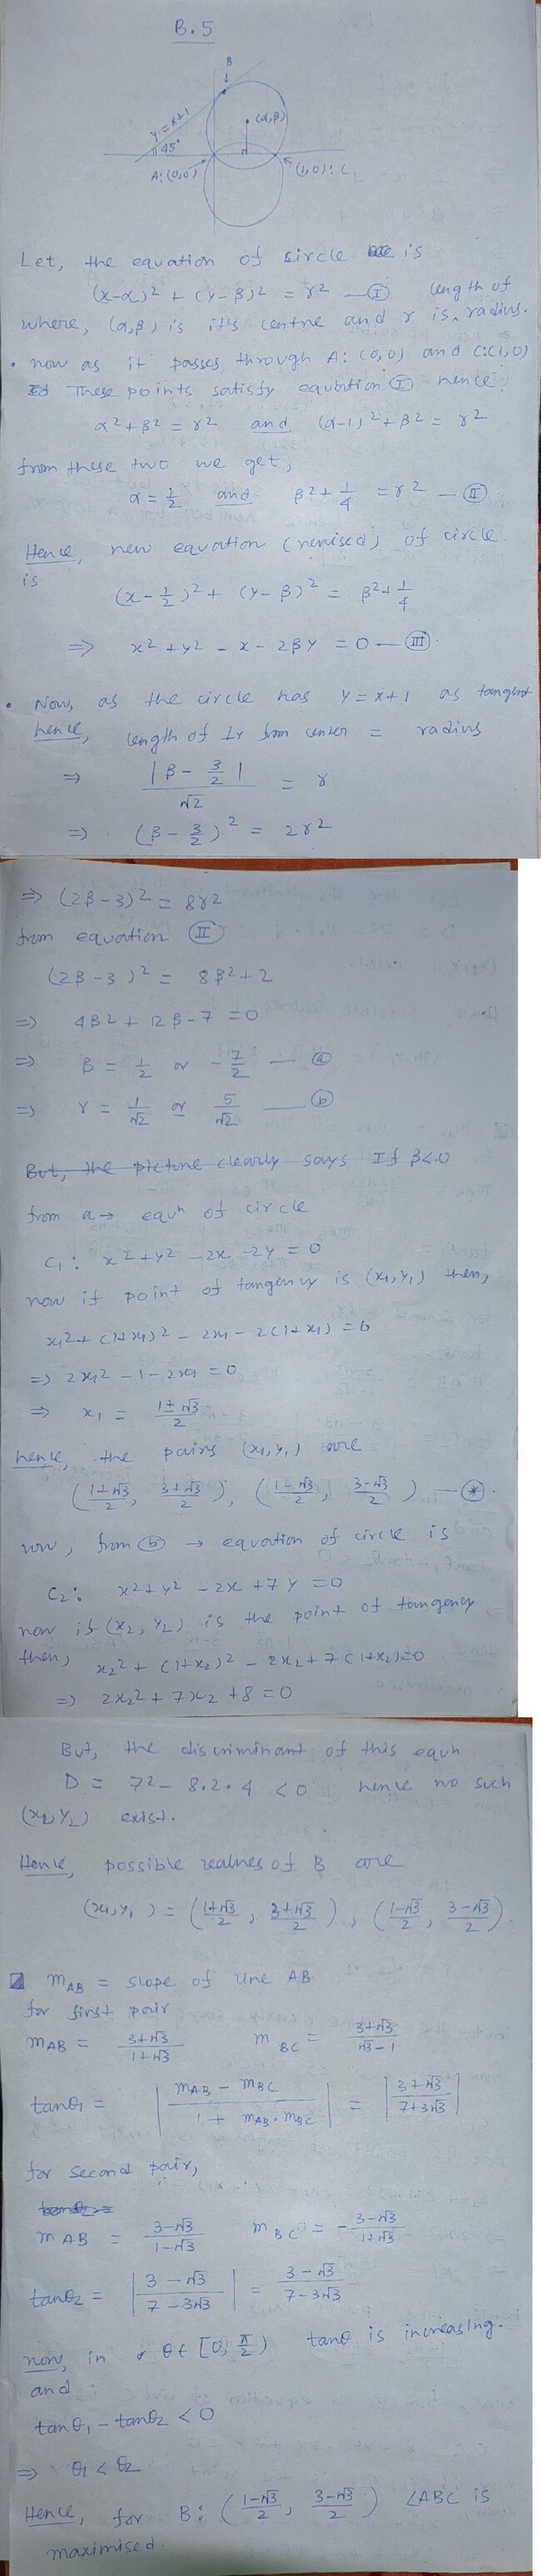 B.5
B
y = x+1
45°
(α,β)
A:(0,0)
(1,0):C
Let, the equation of circle is
(x-α)² + (y-β)² = r² — Ⓘ
where, (α,β) is it's centre and r is length of radius.
• now as it passes through A: (0,0) and C:(1,0)
These points satisfy equation Ⓘ hence
α²+β² = r² and (α-1)²+β² = r²
from these two we get,
α = 1/2 and β²+1/4 = r² — Ⓘ Ⓘ
Hence, new equation (revised) of circle
is
(x-1/2)² + (y-β)² = β²+1/4
⇒ x²+y² - x - 2βy = 0 — (III)
• Now, as the circle has y = x+1 as tangent
hence, length of ⊥r from center = radius
⇒ |β - 3/2| / √2 = r
⇒ (β - 3/2)² = 2r²
⇒ (2β-3)² = 8r²
from equation (II)
(2β-3)² = 8β²+2
⇒ 4β²+12β-7 = 0
⇒ β = 1/2 or -7/2 — ⓐ
⇒ r = 1/√2 or 5/√2 — ⓑ
But, the picture clearly says If β<0
from a → equn of circle
C₁: x²+y² -2x -2y = 0
now if point of tangency is (x₁,y₁) then,
x₁²+(1+x₁)² - 2x₁ - 2(1+x₁) = 0
⇒ 2x₁² - 1 - 2x₁ = 0
⇒ x₁ = (1±√3)/2
hence, the pairs (x₁,y₁) are
((1+√3)/2, (3+√3)/2), ((1-√3)/2, (3-√3)/2) — ⊛.
now, from ⓑ → equation of circle is
C₂: x²+y² -2x +7y = 0
now if (x₂,y₂) is the point of tangency
then, x₂² + (1+x₂)² - 2x₂ + 7(1+x₂)=0
⇒ 2x₂² + 7x₂ + 8 = 0
But, the discriminant of this equn
D = 7² - 8.2.4 < 0 hence no such
(x₂,y₂) exist.
Hence, possible values of B are
(x₁,y₁) = ((1+√3)/2, (3+√3)/2), ((1-√3)/2, (3-√3)/2).
m_AB = slope of line AB
for first pair
m_AB = (3+√3)/(1+√3) m_BC = (3+√3)/(√3-1)
tanθ₁ = |(m_AB - m_BC)/(1 + m_AB.m_BC)| = |(3+√3)/(7+3√3)|
for second pair,
tanθ₂ =
m_AB = (3-√3)/(1-√3) m_BC = -(3-√3)/(1+√3)
tanθ₂ = |(3-√3)/(7-3√3)| = (3-√3)/(7-3√3)
now, in θ∈[0,π/2) tanθ is increasing.
and
tanθ₁ - tanθ₂ < 0
⇒ θ₁ < θ₂
Hence, for B: ((1-√3)/2, (3-√3)/2) ∠ABC is
maximised.